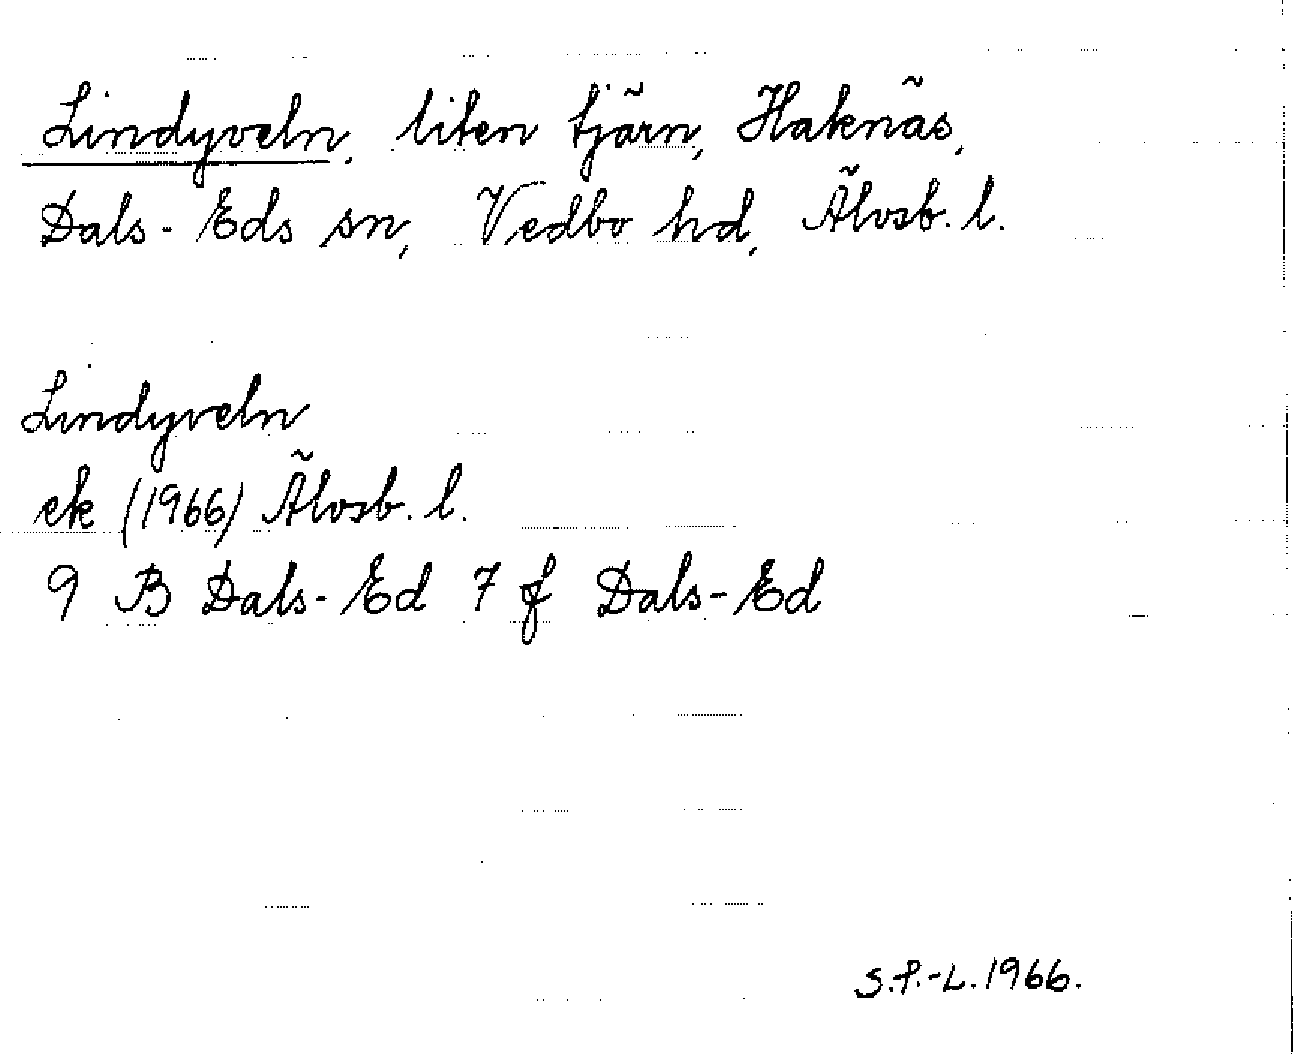 Lindyveln, liten tjärn, Haknäs,
Dals-Eds sn, Vedbo hd, Älvsb. l.
Lindyveln
ek (1966) Älvsb. l.
9 B Dals-Ed 7 f Dals-Ed
S.P.-L. 1966.